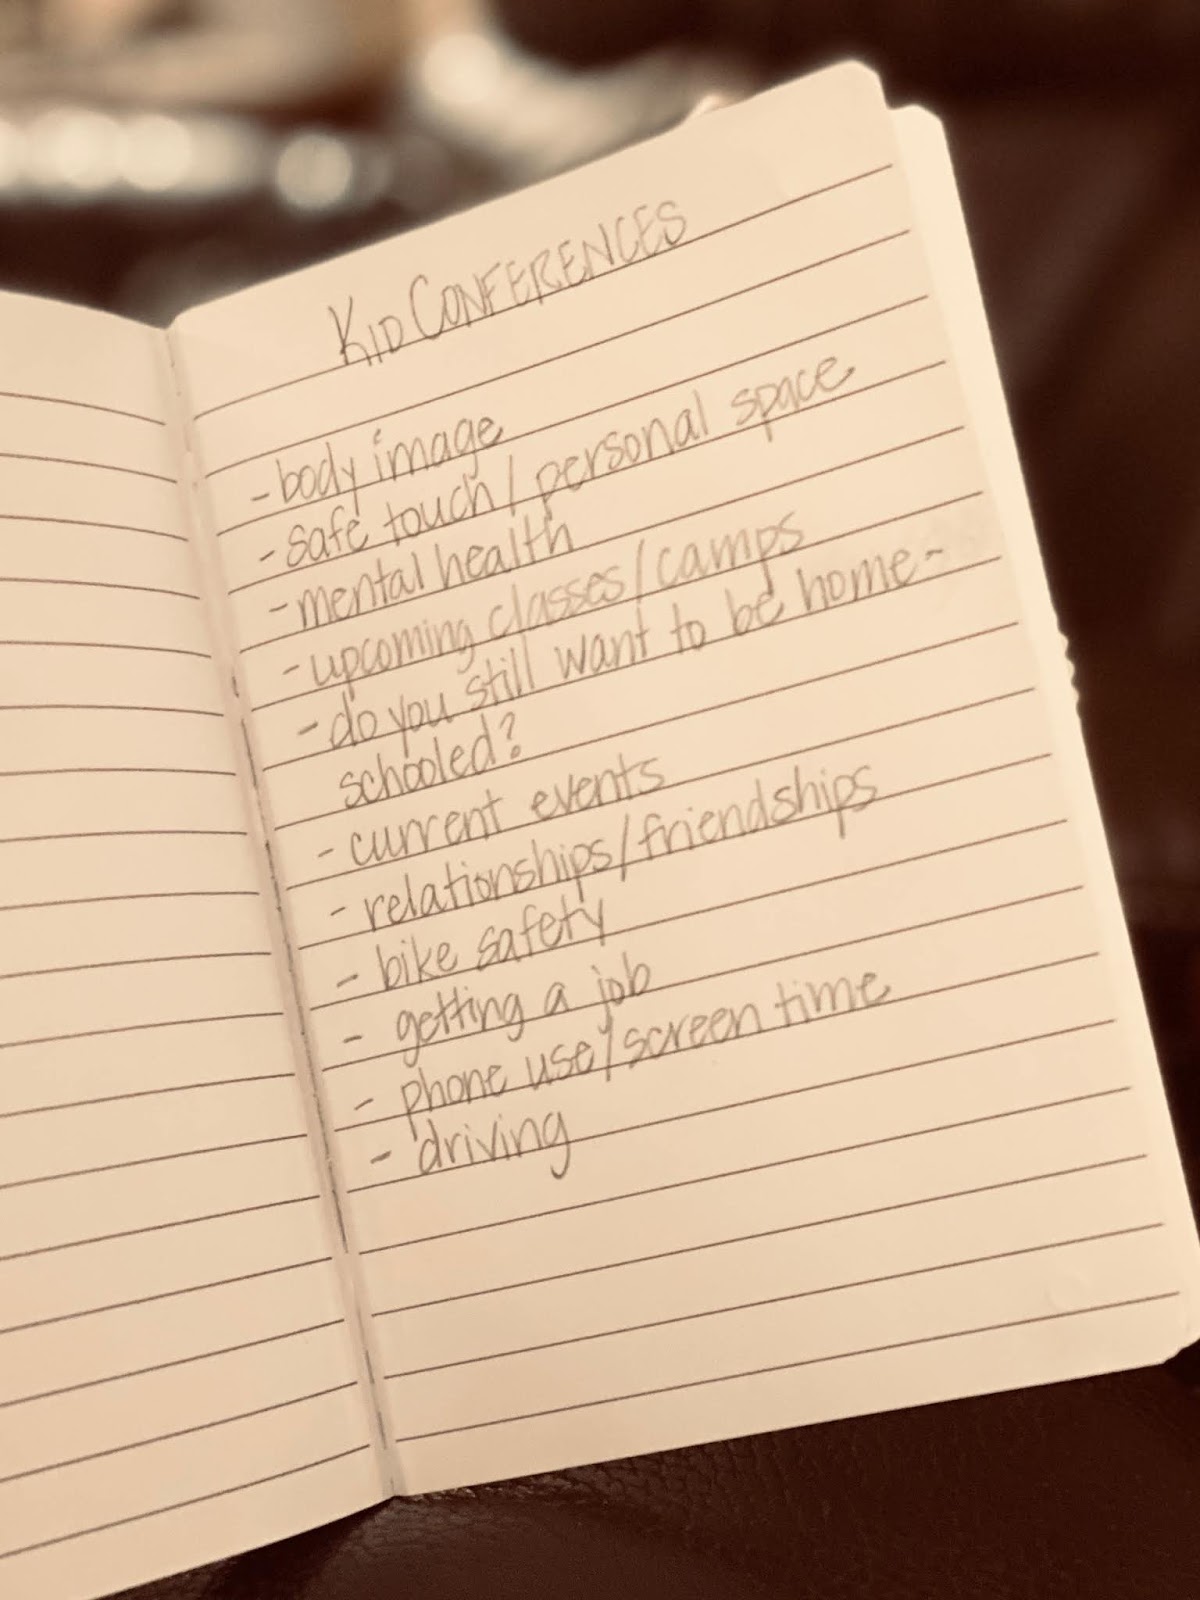 KID CONFERENCES
- body image
- safe touch / personal space
- mental health
- upcoming classes/camps
- do you still want to be home-
schooled?
- current events
- relationships/friendships
- bike safety
- getting a job
- phone use/screen time
- driving